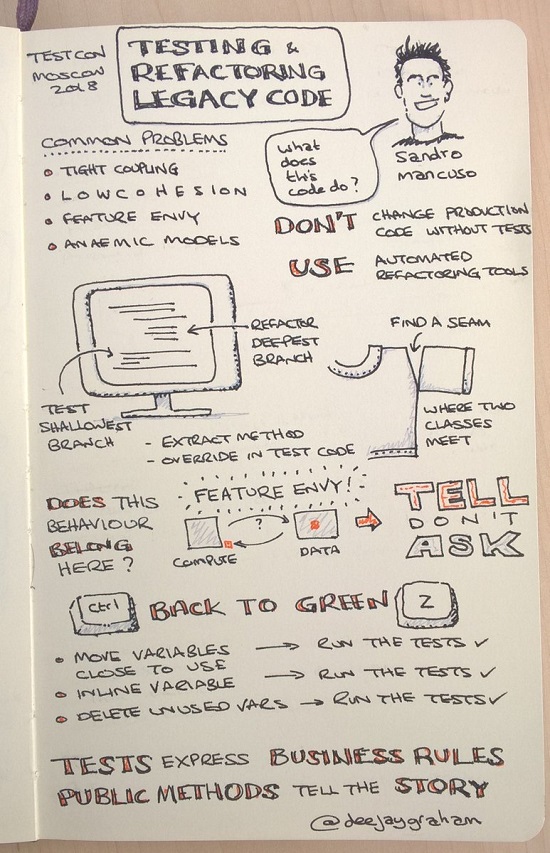 TESTCON
MOSCOW
2018
TESTING &
REFACTORING
LEGACY CODE
COMMON PROBLEMS
TIGHT COUPLING
LOW COHESION
FEATURE ENVY
ANAEMIC MODELS
what
does
this
code do?
Sandro
Mancuso
DON'T CHANGE PRODUCTION
CODE WITHOUT TESTS
USE AUTOMATED
REFACTORING TOOLS
REFACTOR
DEEPEST
BRANCH
TEST
SHALLOWEST
BRANCH
- EXTRACT METHOD
- OVERRIDE IN TEST CODE
FIND A SEAM
WHERE TWO
CLASSES
MEET
DOES THIS
BEHAVIOUR
BELONG
HERE?
FEATURE ENVY!
?
COMPUTE
DATA
TELL
DON'T
ASK
Ctrl BACK TO GREEN Z
MOVE VARIABLES → RUN THE TESTS ✓
CLOSE TO USE
INLINE VARIABLE → RUN THE TESTS ✓
DELETE UNUSED VARS → RUN THE TESTS ✓
TESTS EXPRESS BUSINESS RULES
PUBLIC METHODS TELL THE STORY
@deejaygraham